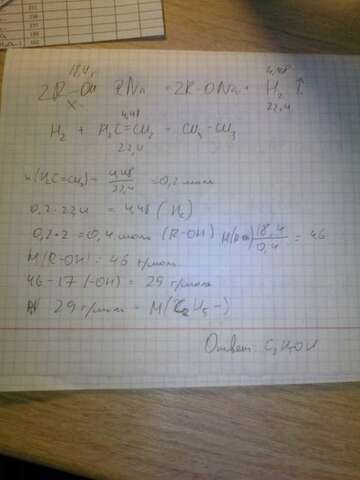 18,4г 4,48
2R-OH + 2Na = 2R-ONa + H₂ ↑
x 22,4
4,48
H₂ + H₂C=CH₂ = CH₃-CH₃
22,4
n(H₂C=CH₂) = 4,48/22,4 = 0,2 моль
0,2·22,4 = 4,48 (H₂)
0,2·2 = 0,4 моль (R-OH) M(R-OH) 18,4/0,4 = 46
M(R-OH) = 46 г/моль
46-17 (-OH) = 29 г/моль
29 г/моль = M(C₂H₅-)
Ответ: C₂H₅OH